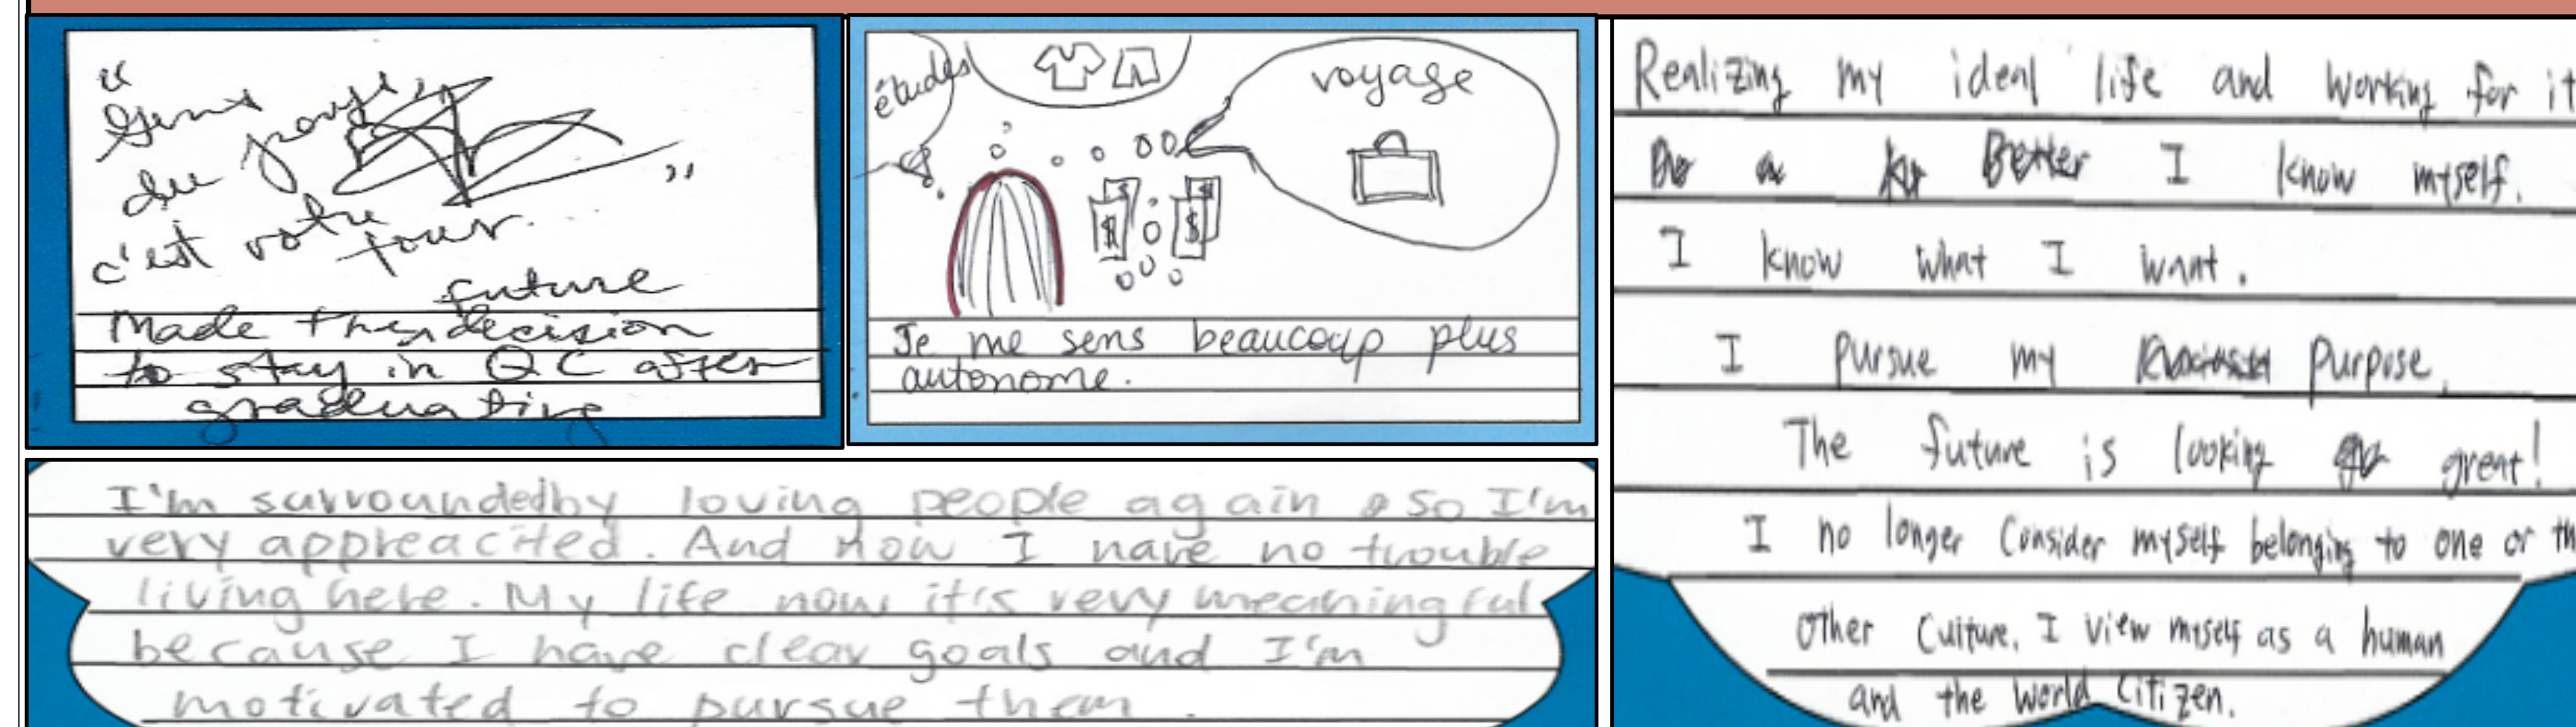 "Gens
du pays,
"
c'est votre
tour.
future
Made the decision
to stay in QC after
graduating
études
voyage
$ $
Je me sens beaucoup plus
autonome.
I'm surroundedby loving people again so I'm
very appreacited. And now I have no trouble
living here. My life now it's very meaningful
because I have clear goals and I'm
motivated to pursue them.
Realizing my ideal life and working for it
Better I know myself.
I know what I want.
I pursue my purpose.
The future is looking great!
I no longer consider myself belonging to one or th
other culture. I view myself as a human
and the world citizen.